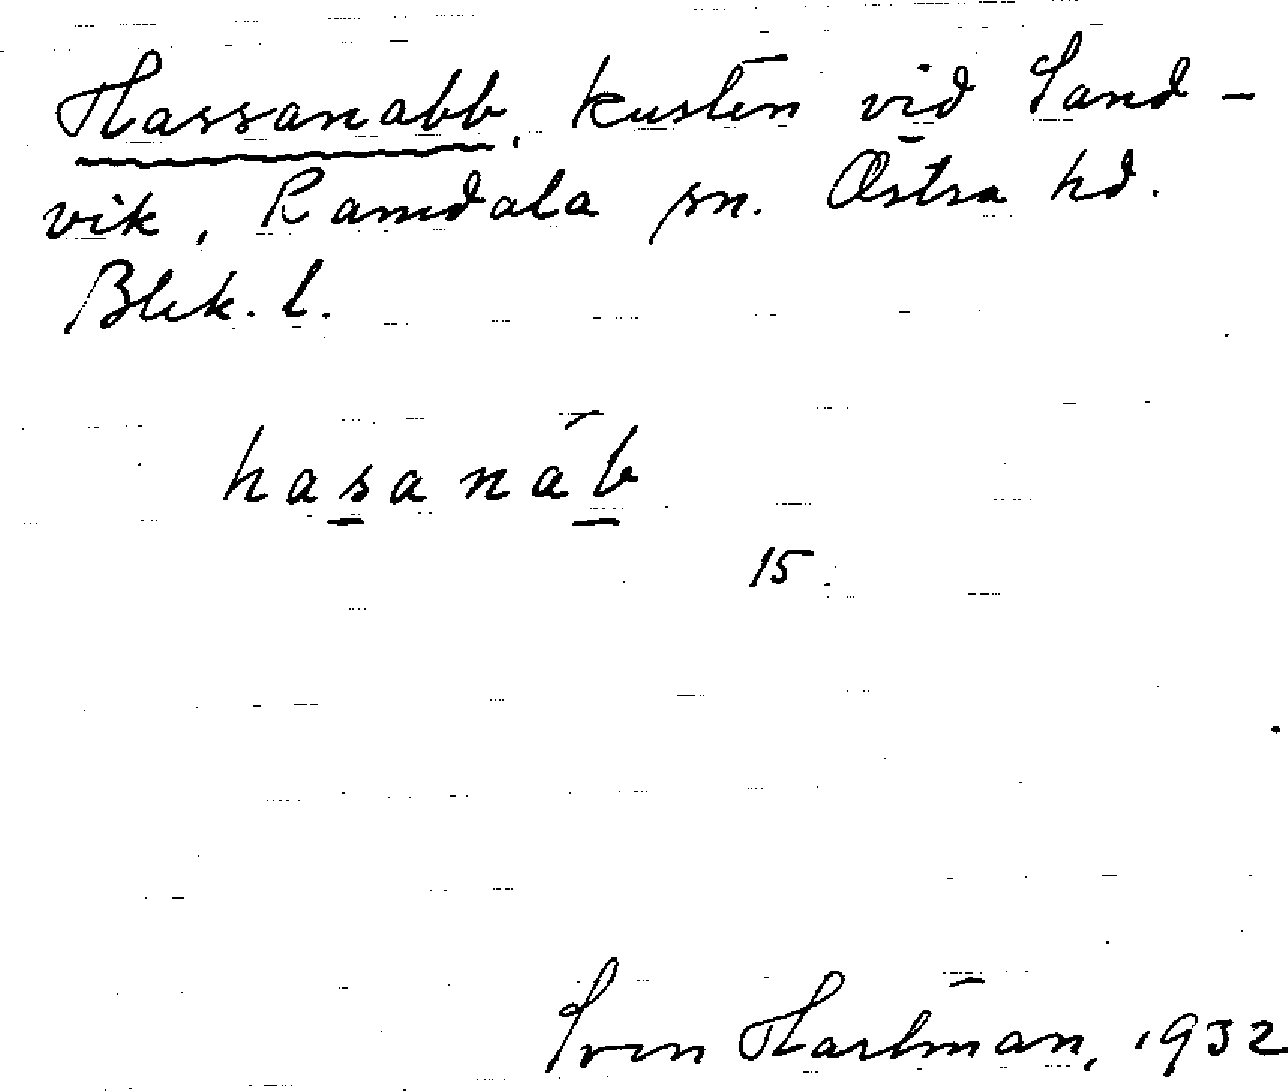 Hassanabb, kusten vid Sand-
vik, Ramdala sn. Östra hd.
Blek. l.
hasanáb
15.
Sven Hartman, 1932